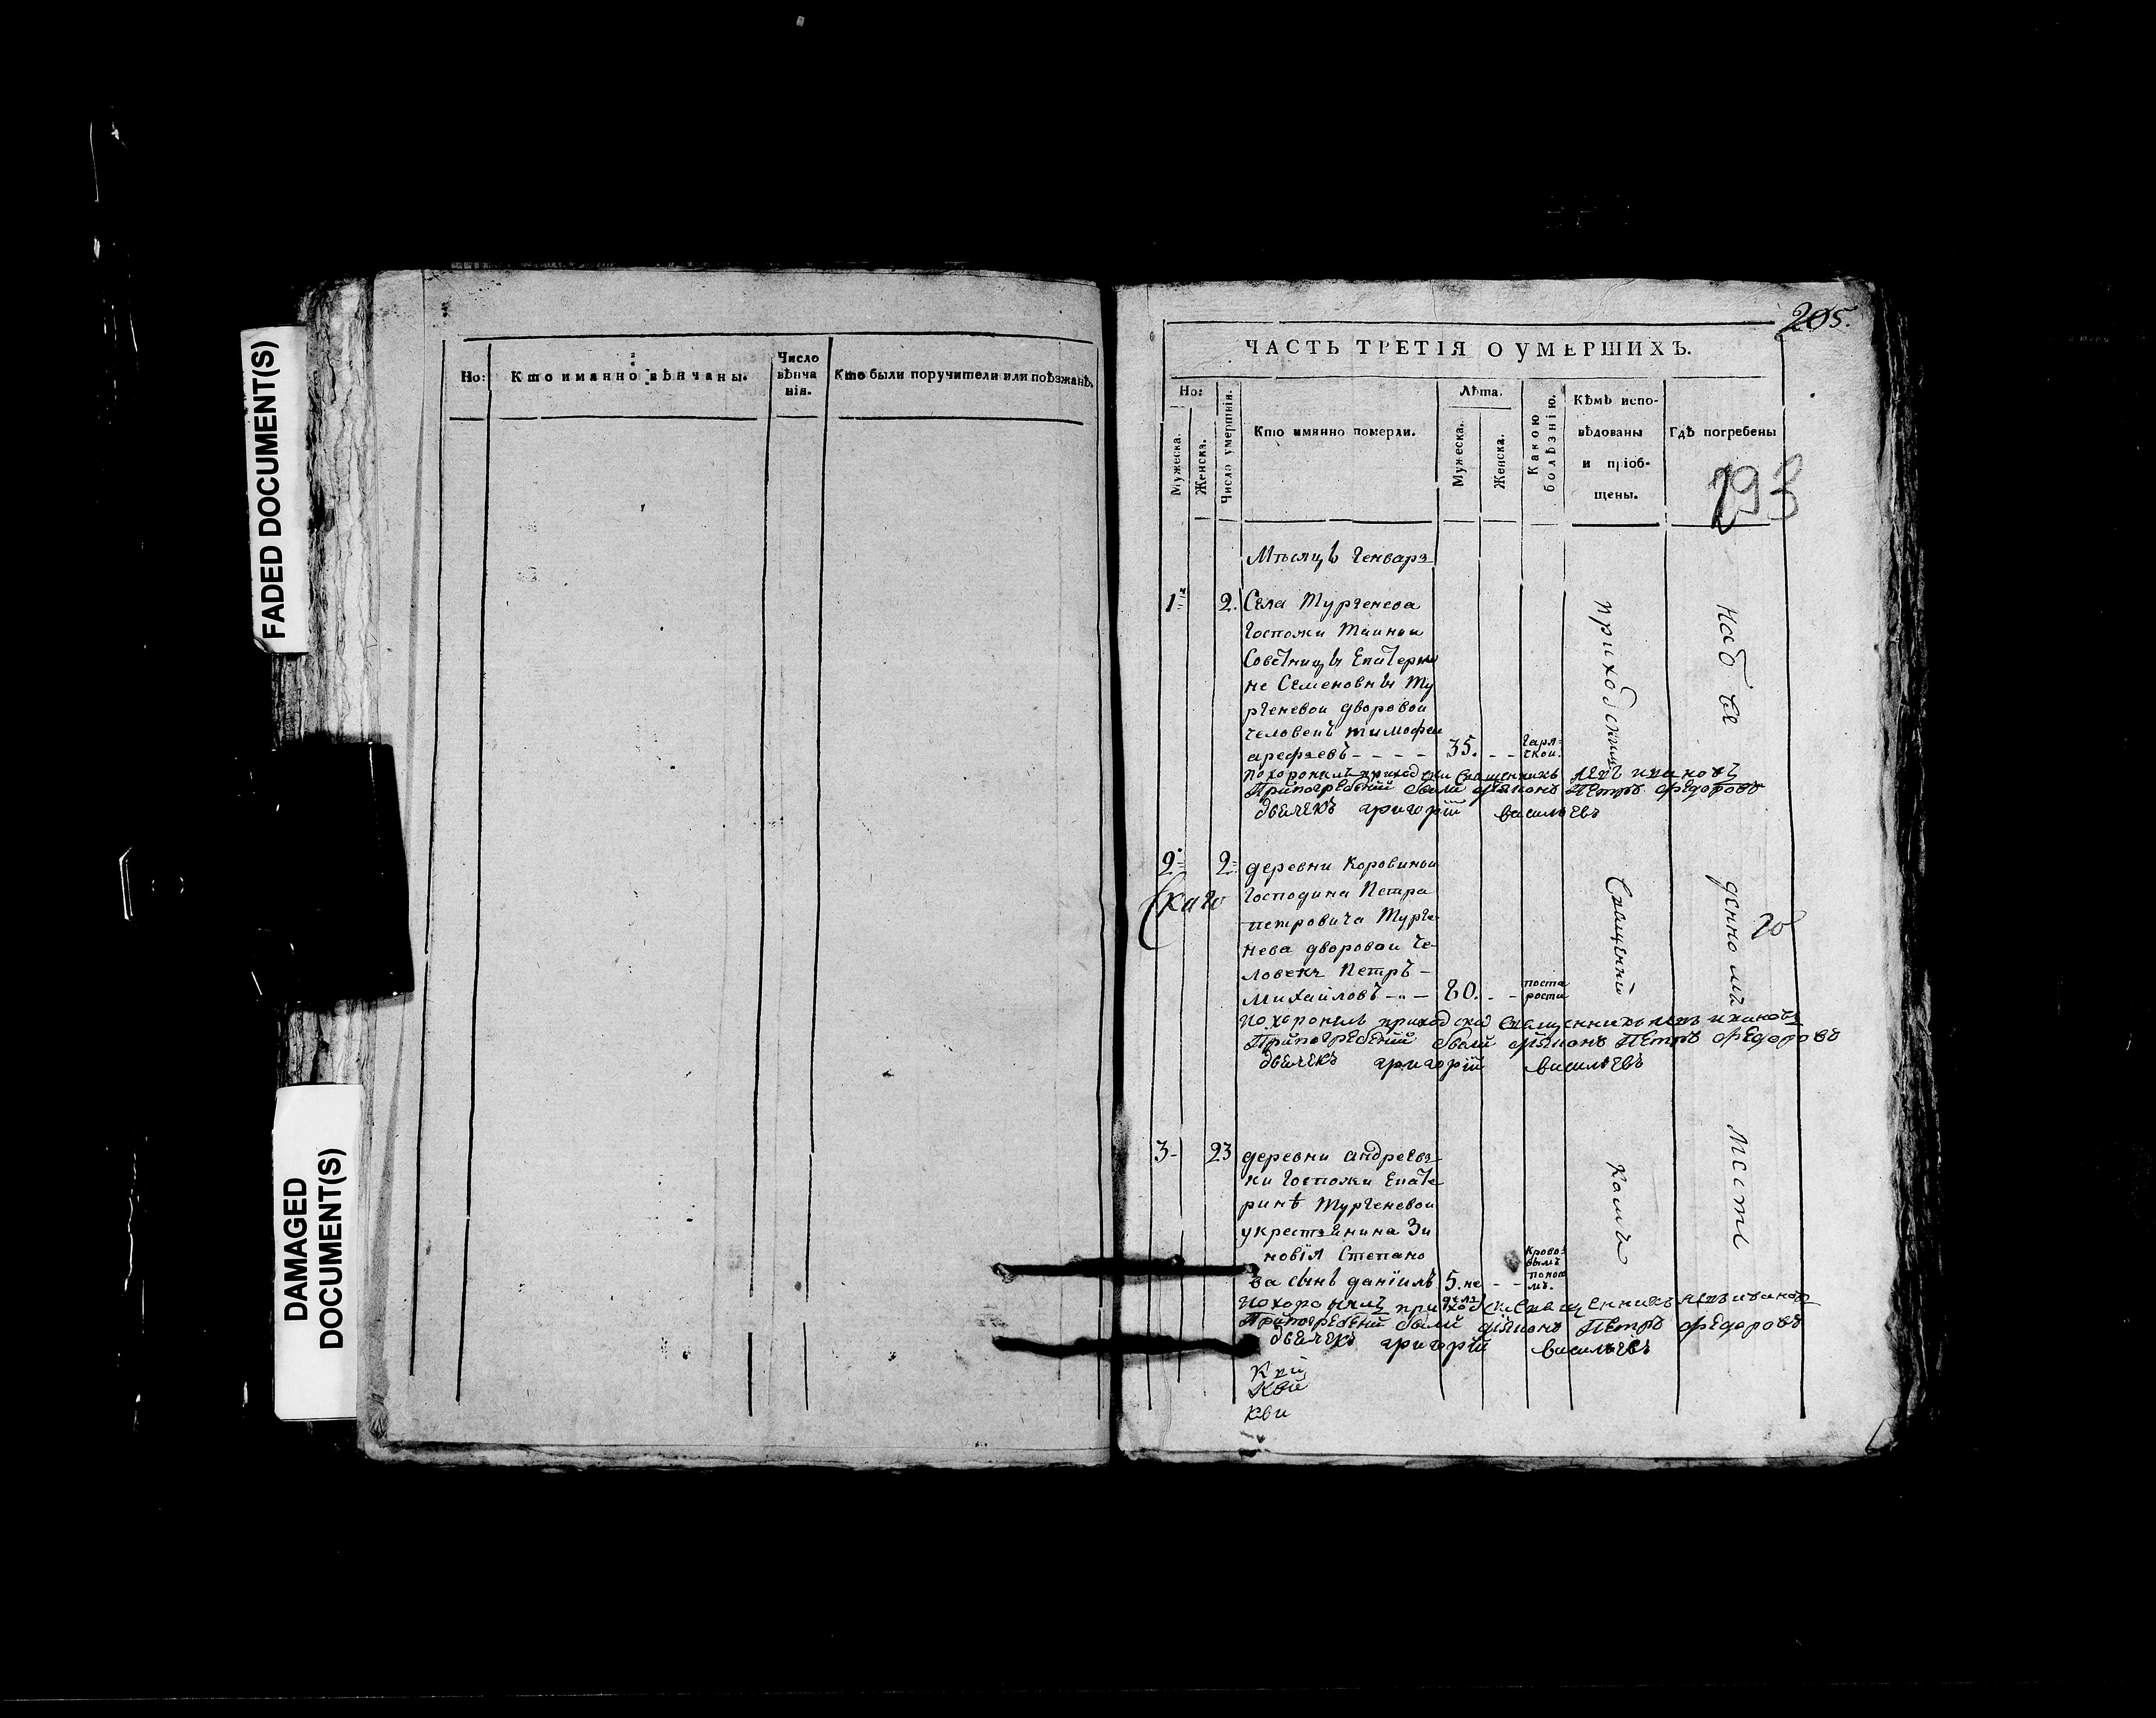 FADED DOCUMENT(S)
DAMAGED
DOCUMENT(S)
Но:
Кто иманно вѣнчаны.
Число
вѣнча
нія.
Кто были поручители или поѣзжанѣ.
205.
ЧАСТЬ ТРЕТІЯ О УМЕРШИХЪ.
Но:
Мужеска.
Женска.
Число умертвія.
Кто имянно померли.
Лѣта.
Мужеска.
Женска.
Какою
болѣзнію.
Кѣмъ испо-
вѣдованы
и пріоб-
щены.
Гдѣ погребены
193
Мѣсяцъ Генварь
1 2. Села Тургенева
Госпожи Тайной
Советницы Екатери
не Семеновны Ту
ргеневой дворовой
человекъ тимофей
арефьевъ 35. горя-
чкой.
похоронилъ приходский священникъ левъ ивановъ
При погребении были диаконъ Петръ федоровъ
дьячекъ григорій васильевъ
2 2 деревни Коровиной
Господина Петра
петровича Турге-
нева дворовой че-
ловекъ Петръ
Михайловъ 80. поста
рости
похоронилъ приходский священникъ левъ ивановъ
При погребеніи были диаконъ Петръ федоровъ
дьячекъ григорій васильевъ
скаго
3 23 деревни андреев
ки Госпожи Екате
ринѣ Тургеневой
укрестьянина Зи
новія Степано
ва сынъ даніилъ 5. не
дель
крово-
вымъ
поносо
мъ.
похоронилъ приходский священникъ левъ ивановъ
При погребеніи были діаконъ Петръ федоровъ
дьячекъ григорій васильевъ
кви
приходскимъ
Священни
комъ
на кла
денномъ
месте